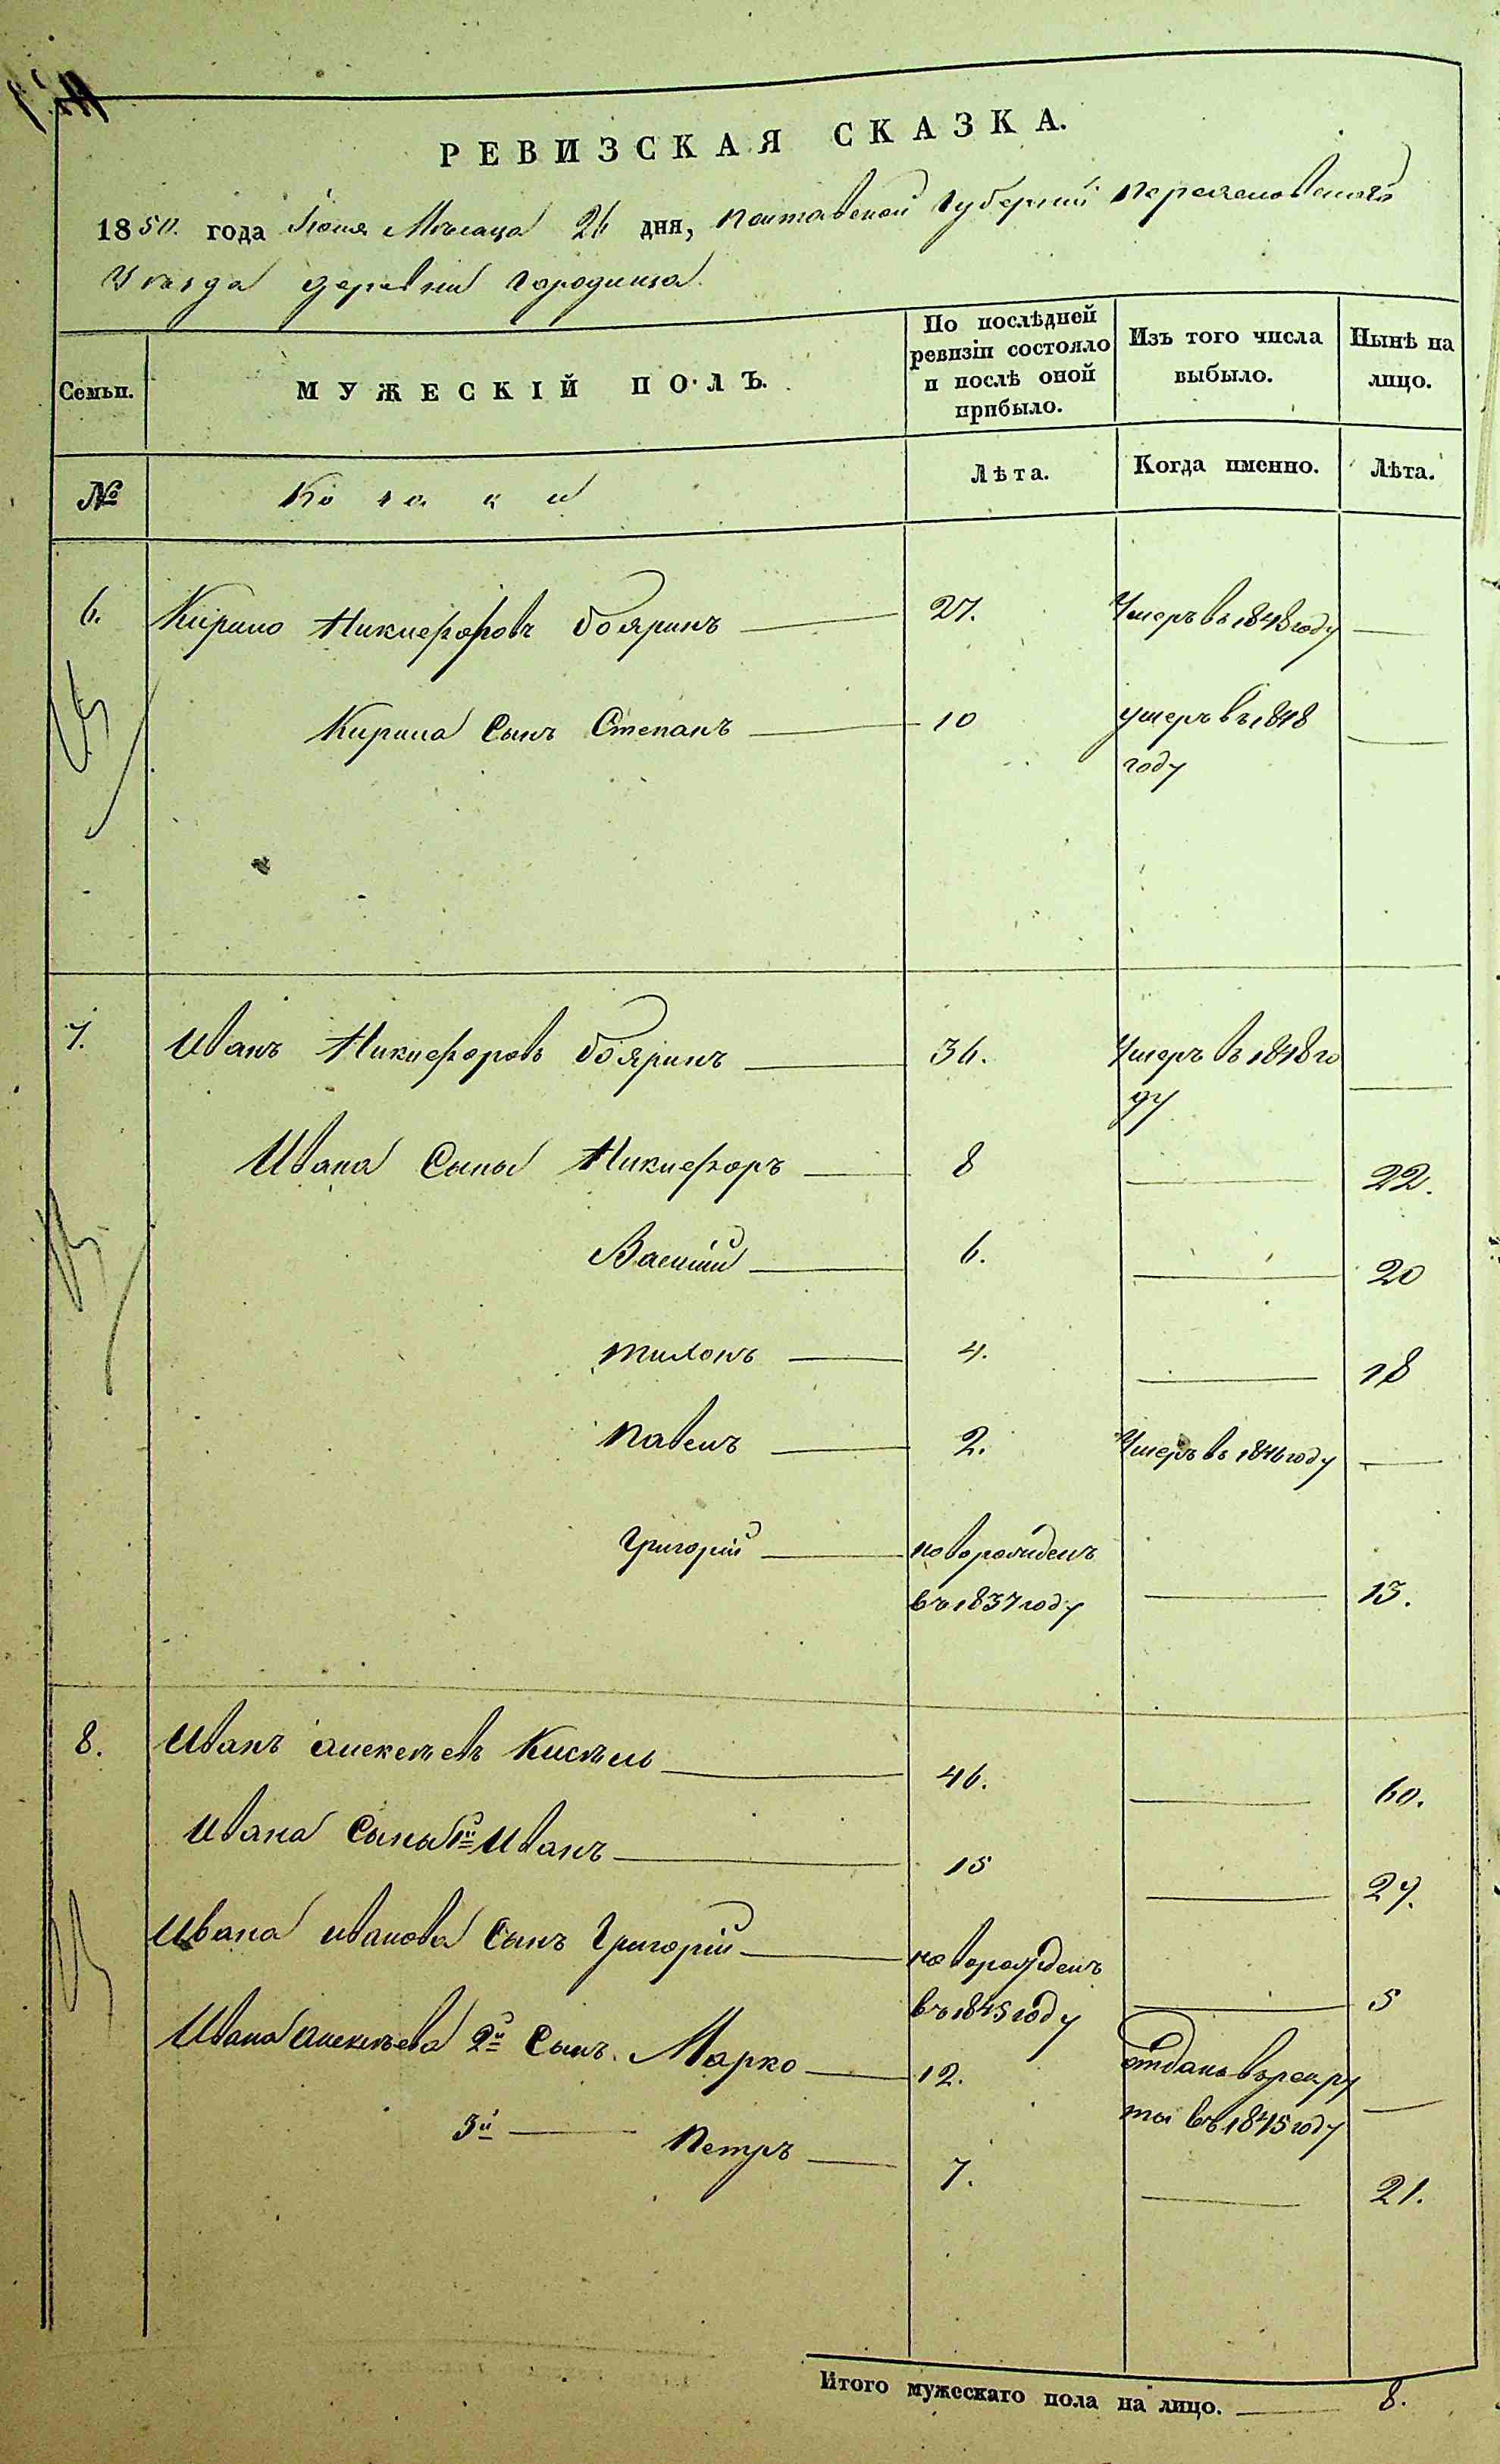 РЕВИЗСКАЯ СКАЗКА.
1850. года Іюня Мѣсяца 26 дня, Полтавской Губерніи Переяславскаго
Уѣзда деревни Городища
Семьи.
МУЖЕСКІЙ ПОЛЪ.
По послѣдней ревизіи состояло и послѣ оной прибыло.
Изъ того числа выбыло.
Нынѣ на лицо.
№ Козаки Лѣта. Когда именно. Лѣта.
6. Кирило Никифоровъ бояринъ 27. Умеръ въ 1848 году
Кирила Сынъ Степанъ 10 умеръ въ 1848
году
7. Иванъ Никифоровъ бояринъ 36. Умеръ въ 1848 го
ду
Ивана Сыны Никифоръ 8 22.
Василій 6. 20
Тихонъ 4. 18
Павелъ 2. Умеръ въ 1846 году
Григорій новорожденъ
въ 1837 году 13.
8. Иванъ Алексѣевъ Кисѣль 46. 60.
Ивана Сыны 1й Иванъ 15 29.
Ивана Иванова Сынъ Григорій новорожденъ
въ 1845 году 5
Ивана Алексѣева 2й Сынъ Марко 12. отданъ въ рекру
ты въ 1845 году
3й Петръ 7. 21.
Итого мужескаго пола на лицо. 8.